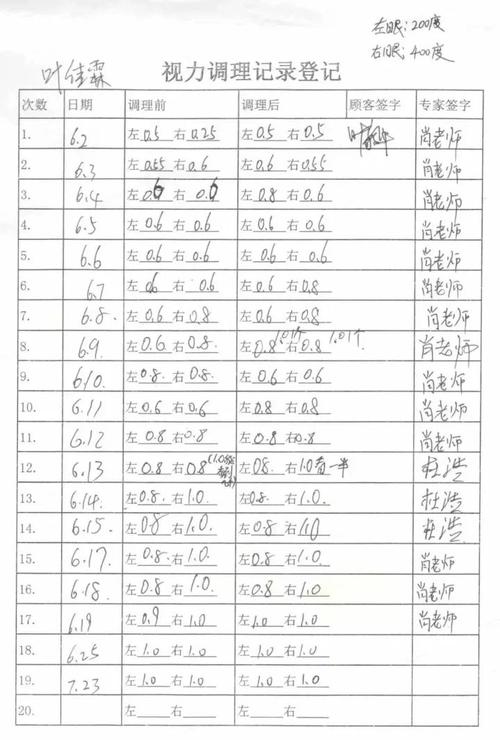 左眼:200度
右眼:400度
叶佳霖 视力调理记录登记
次数 日期 调理前 调理后 顾客签字 专家签字
1. 6.2 左0.5 右0.25 左0.5 右0.5 肖老师
2. 6.3 左0.55 右0.6 左0.6 右0.55 肖老师
3. 6.4 左0.6 右0.6 左0.8 右0.6 肖老师
4. 6.5 左0.6 右0.6 左0.6 右0.6 肖老师
5. 6.6 左0.6 右0.6 左0.6 右0.6 肖老师
6. 6.7 左0.6 右0.6 左0.6 右0.8 肖老师
7. 6.8. 左0.6 右0.8 左0.6 右0.8 肖老师
8. 6.9. 左0.6 右0.8. 左0.8 1.01个 右0.8 1.01个 肖老师
9. 6.10. 左0.8. 右0.8. 左0.6 右0.6 肖老师
10. 6.11 左0.6 右0.6 左0.6 右0.8 肖老师
11. 6.12 左0.8 右0.8 左0.8 右0.8. 肖老师
12. 6.13 左0.8 右0.8 左0.8. 右1.0看一半 杜浩
13. 6.14. 左0.8. 右1.0. 左0.8. 右1.0. 杜浩
14. 6.15. 左0.8 右1.0. 左0.8 右1.0 杜浩
15. 6.17. 左0.8. 右1.0. 左0.8. 右1.0 肖老师
16. 6.18. 左0.8 右1.0. 左0.8 右1.0 肖老师
17. 6.19 左0.9 右1.0 左1.0 右1.0 肖老师
18. 6.25 左1.0 右1.0 左1.0 右1.0
19. 7.23 左1.0 右1.0 左1.0 右1.0
20. 左 右 左 右